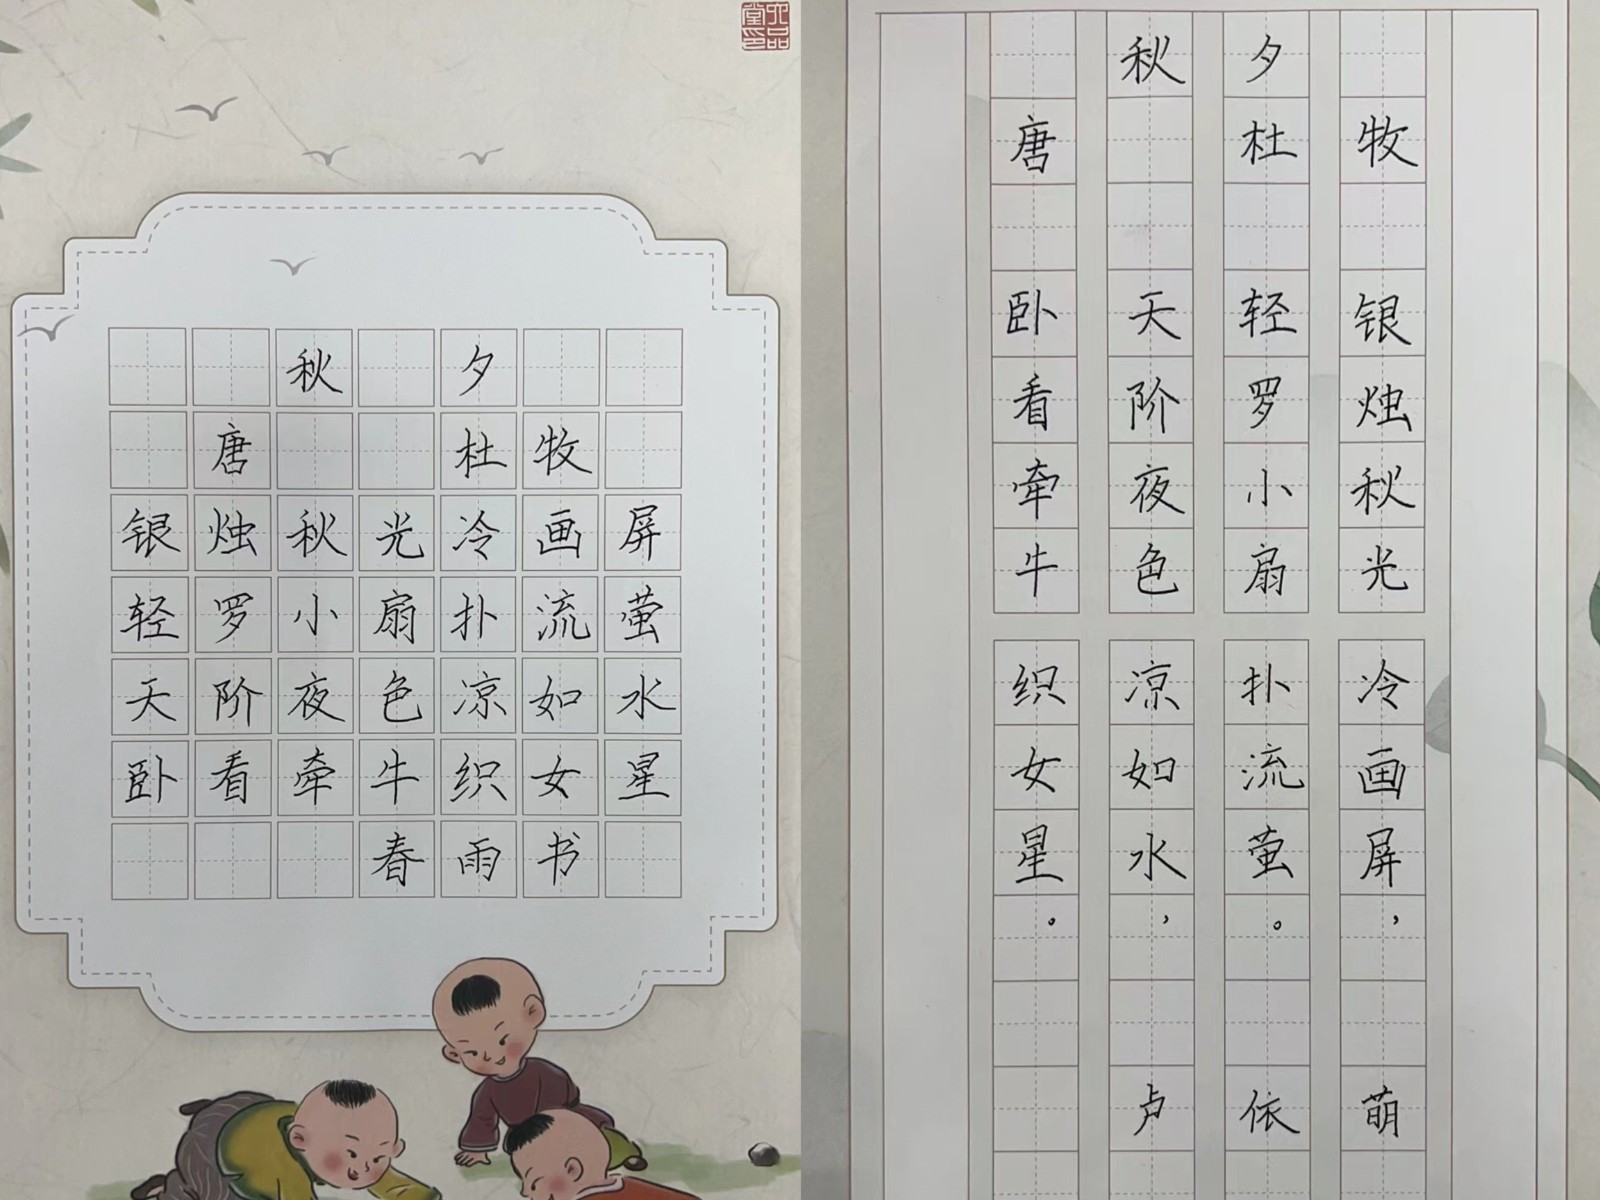 六品堂印
秋夕
唐 杜牧
银烛秋光冷画屏
轻罗小扇扑流萤
天阶夜色凉如水
卧看牵牛织女星
春雨书
秋夕
唐 杜牧
银烛秋光冷画屏，
轻罗小扇扑流萤。
天阶夜色凉如水，
卧看牵牛织女星。
卢依萌